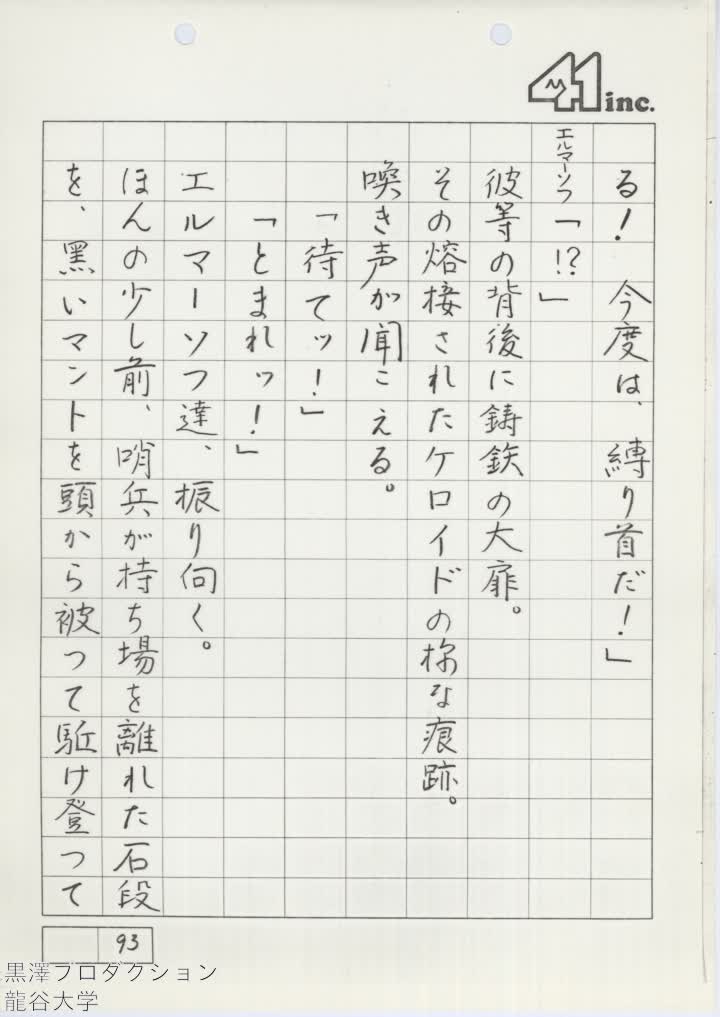 41 inc.
る！　今度は、縛り首だ！」
エルマーソフ「!?」
彼等の背後に鋳鉄の大扉。
その熔接されたケロイドの様な痕跡。
喚き声が聞こえる。
「待てッ！」
「とまれッ！」
エルマーソフ達、振り向く。
ほんの少し前、哨兵が持ち場を離れた石段
を、黒いマントを頭から被つて駈け登つて
93
黒澤プロダクション
龍谷大学